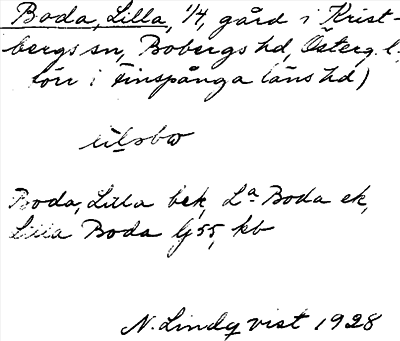 Boda, Lilla, 1/4, gård i Krist-
bergs sn, Bobergs hd, Österg. l.
(örr i Finspånga läns hd)
Boda, Lilla bek, La Boda ek,
Lilla Boda Gj 55, kb
N. Lindqvist 1928